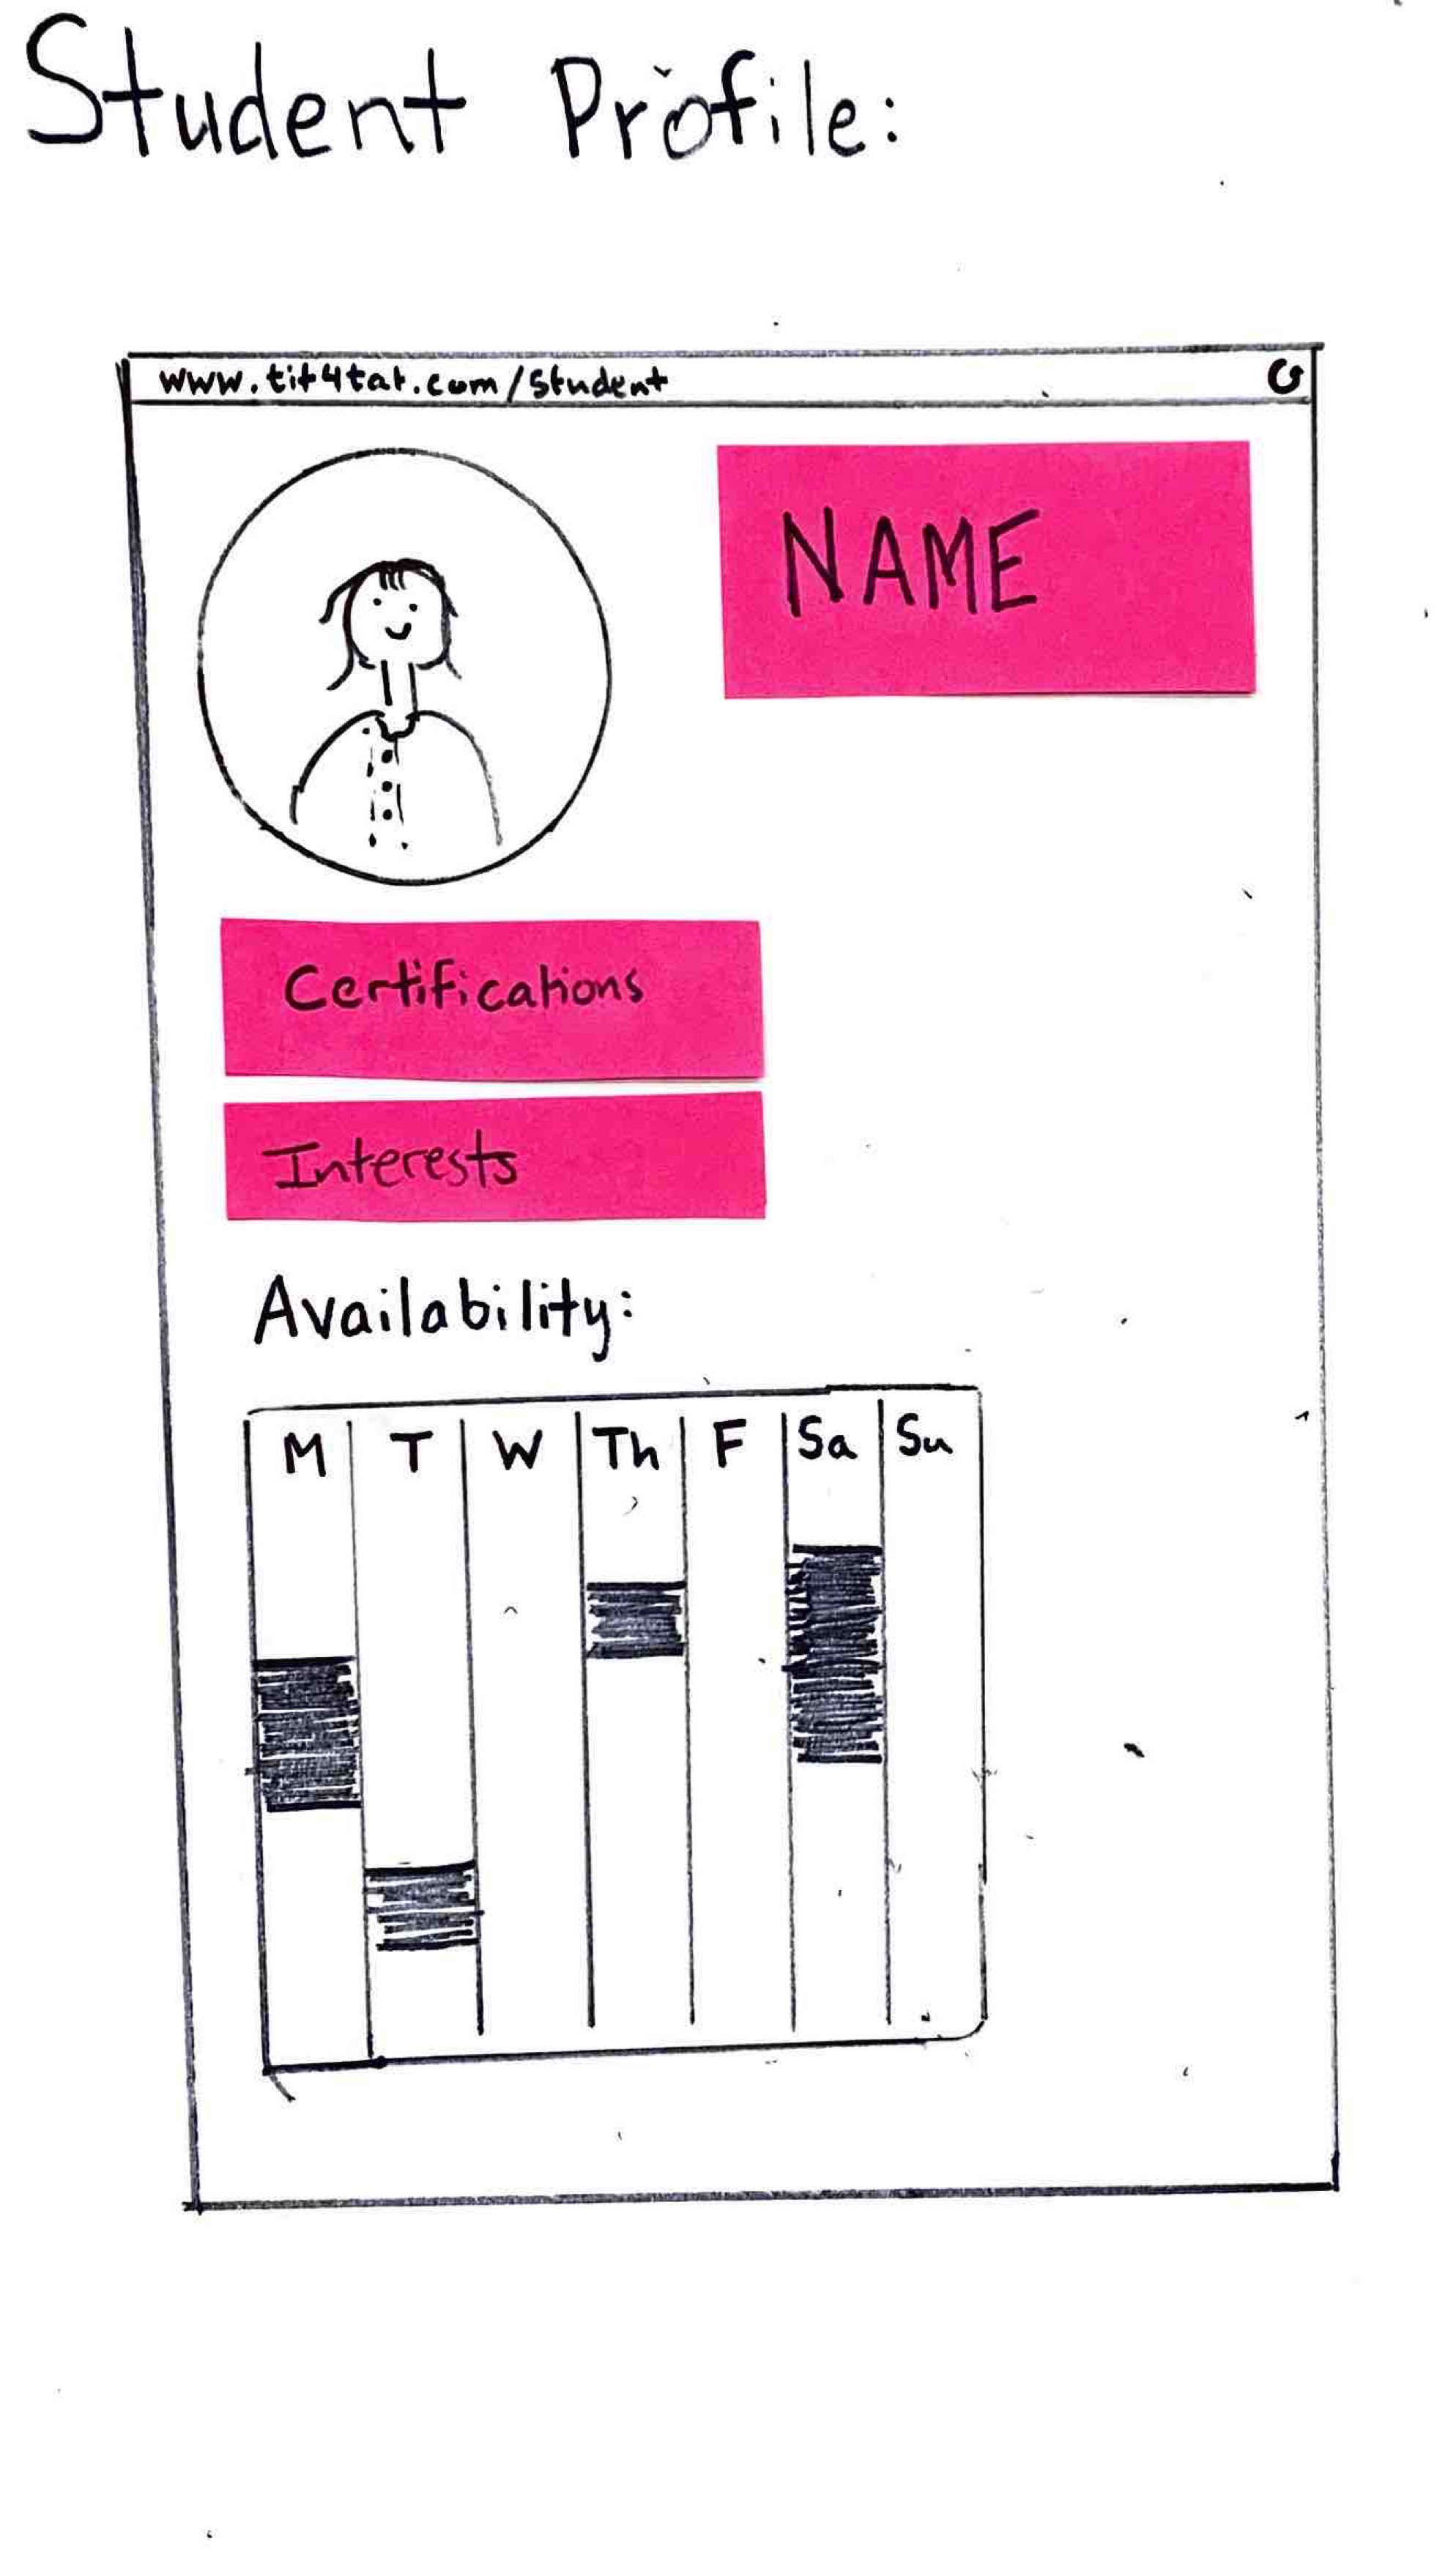 Student Profile:
www.tit4tat.com/student
NAME
Certifications
Interests
Availability:
M T W Th F Sa Su